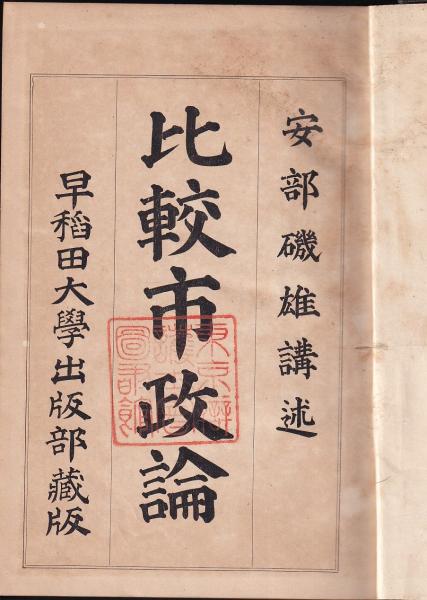 安部磯雄講述
比較市政論
早稲田大學出版部藏版